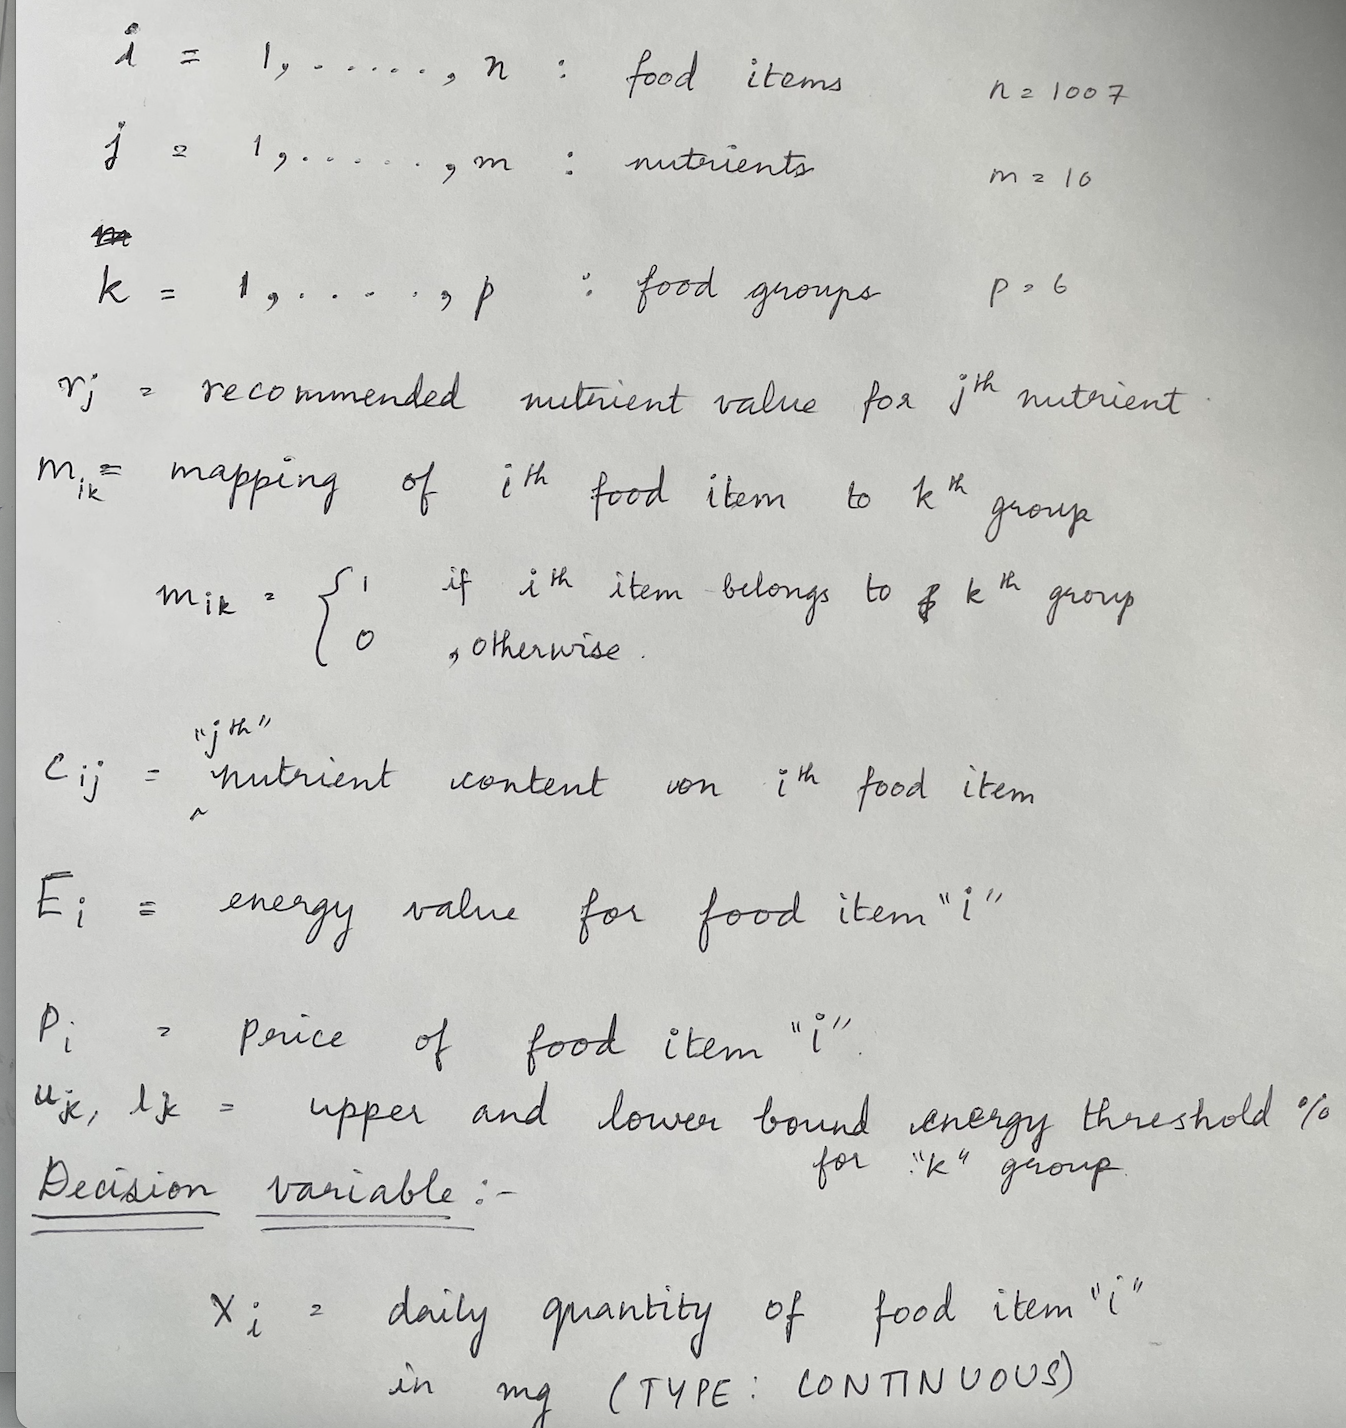 i = 1, ......, n : food items n = 1007
j = 1, ......, m : nutrients m = 10
k = 1, ....., p : food groups p = 6
rj = recommended nutrient value for jth nutrient.
mik = mapping of ith food item to kth group
mik = { 1 if ith item belongs to kth group
0 , otherwise.
"jth"
cij = nutrient content on ith food item
Ei = energy value for food item "i"
Pi = price of food item "i".
uk, lk = upper and lower bound energy threshold %
for "k" group.
Decision variable :-
Xi = daily quantity of food item "i"
in mg (TYPE : CONTINUOUS)